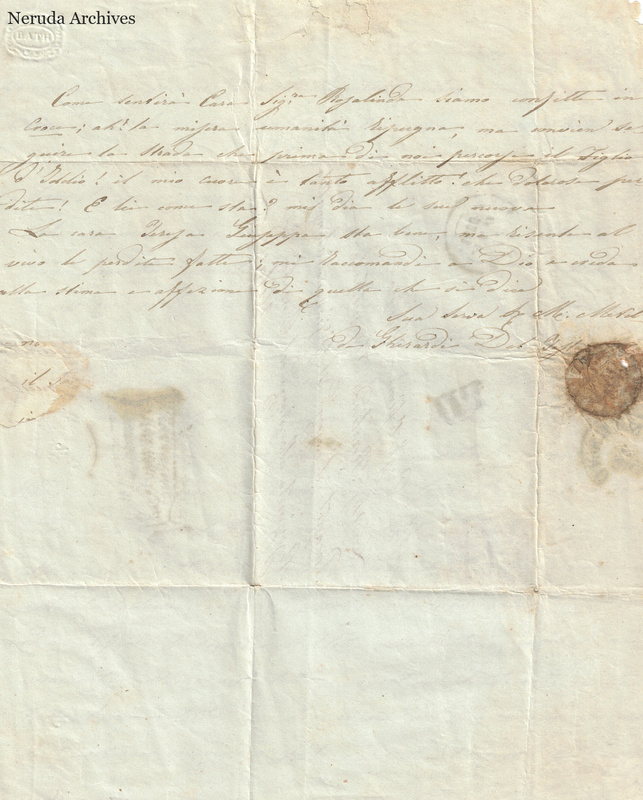 Neruda Archives
BATH
Come sentirà Cara Sig.ra Rosalinda siamo confitte in
Croce; ah! la misera umanità ripugna, ma convien se
guire la strada che prima di noi percorse il Figlio
d'Iddio! il mio cuore è tanto afflitto! che dolorose per
dite! E lei come sta? mi dia le sue nuove
La cara Giuseppa sta bene, ma risente al
vivo le perdite fatte; mi raccomandi a Dio e creda
alla stima e affezione di quella che si dice
Sua serva M.